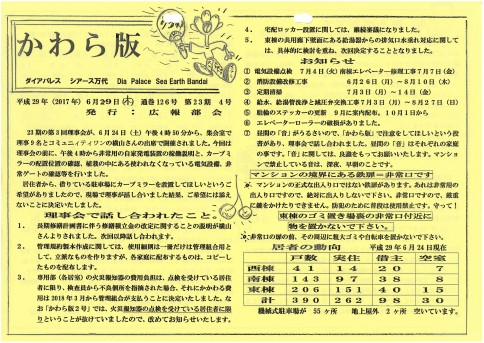 かわら版
ダイアパレス シアース万代 Dia Palace Sea Earth Bandai
平成29年(2017年)6月29日(木)通巻126号 第23期 4号
発行:広報部会
23期の第3回理事会が、6月24日(土)午後4時50分から、集会室で
理事9名とコミュニティーの横山さんの出席で開催されました。今回は
理事会の前に、午後4時から非常用の自家発電装置の起動説明と、カーブミ
ラーの配置位置の確認、植栽の中にある使われなくなっている電気設備、非
常ゲートの確認等を行いました。
居住者から、借りている駐車場にカーブミラーを設置してほしいというご
希望がありましたので、現場で理事が話し合いました結果、ご希望には添え
ないことに決定いたしました。
理事会で話し合われたこと。
1. 長期修繕計画書に伴う修繕積立金の改定に関することの説明が横山
さんよりされました。次回以降話し合われます。
2. 管理規約製本作成に関しては、使用細則は一冊だけは管理組合用と
して、立派なものを作りますが、各家庭に配布するものは、コピーし
たものを配布します。
3. 専用部(各居室)の火災報知器の費用負担は、点検を受けている居住
者に限り、検査員から不良個所を指摘された場合、それにかかわる費
用は2018年3月から管理組合が支払うことに決定いたしました。な
お「かわら版2号」では、火災報知器の点検を受けている居住者に限
りということが抜けていましたので、改めてお知らせいたします。
4. 宅配ロッカー設置に関しては、継続審議になりました。
5. 東棟の共用廊下壁面にある給湯器からの排気口水垂れ対応に関して
は、具体的に検討を重ね、次回決定することとなりました。
お知らせ
① 電気設備点検 7月4日(火)南棟エレベーター修理工事7月7日(金)
② 消防設備改修工事 6月26日(月)~8月10日(木)
③ 定期清掃 7月3日(月)~7月14日(金)
④ 給水、給湯管洗浄と減圧弁交換工事7月3日(月)~8月27日(日)
⑤ 駐輪のステッカーの更新 9月に案内配布、10月1日から
⑥ エレベーターローラーの破損がありました。
⑦ 昼間の「音」がうるさいので、「かわら版」で注意をしてほしいという投
書があり、理事会で話し合われました。昼間の「音」はそれぞれの家庭
の事です。「音」に関しては、良識をもってお願いいたします。マンショ
ンで禁止している音は、深夜、早朝のことです。
マンションの境界にある鉄扉=非常口です
マンションの正式な出入り口ではない鉄扉があります。あれは非常用の
出入り口ですので、絶対に出入りしないで下さい。非常口ですので、厳重
に鍵をかけたりできません。防犯のために普段は使用禁止です。守って!
東棟のゴミ置き場裏の非常口付近に
物を置かないで下さい。
非常口の扉の前、その周辺に粗大ゴミや自転車を置かないで下さい。
居者の動向 平成29年6月24日現在
戸数 実住 借主 空室
西棟 41 14 20 7
南棟 143 97 38 8
東棟 206 151 40 15
計 390 262 98 30
機械式駐車場が 55ヶ所 地上屋外 2ヶ所 空いています。